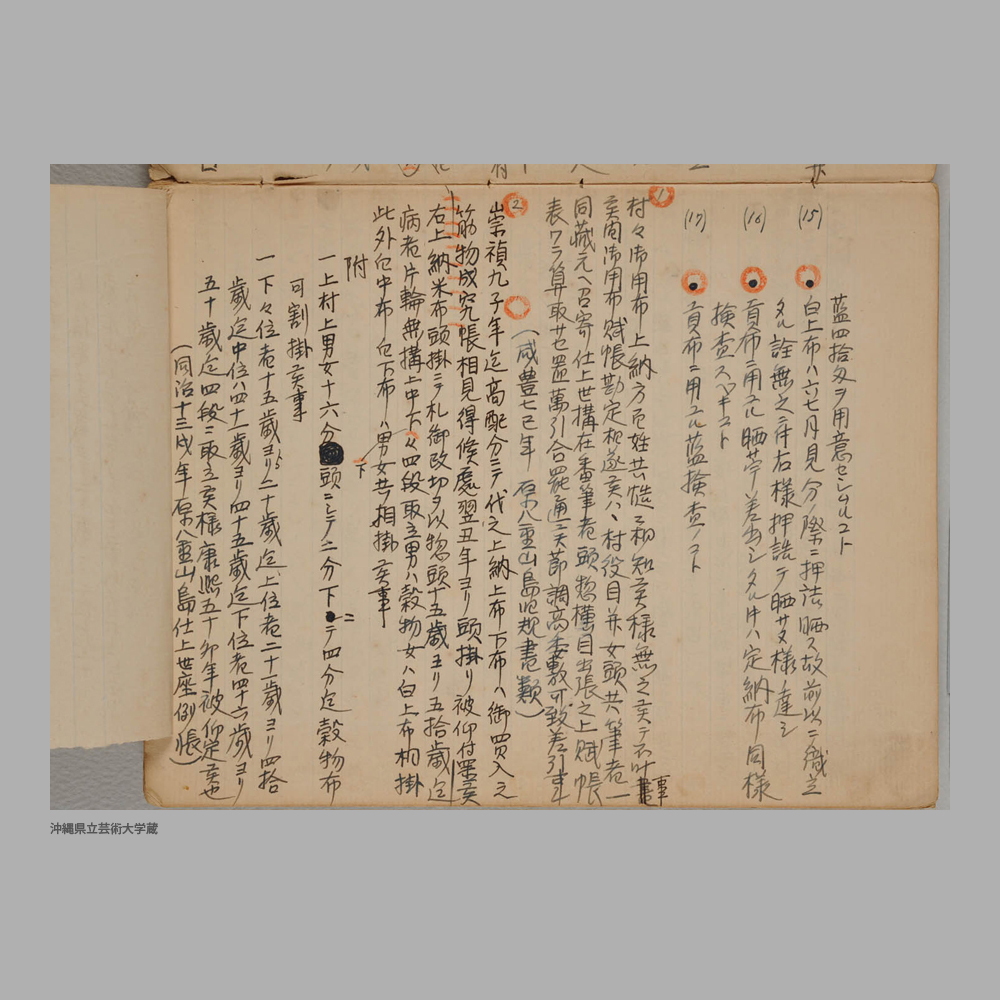 藍四拾匁ヲ用意センムルコト
(15) 白上布ハ六七月見分ノ際ニ押詰晒ス故前以ニ織立
タル詮無之ニ付右様押詰テ晒サヌ様ノ達シ
(16) 貢布ニ用ユル晒苧差出シタル件ハ定納布同様
検査スベキコト
(17) 貢布ニ用ユル藍検査ノコト
1
村々御用布上納方百姓共慥ニ相知亥様無之亥テ不叶事
亥間御用布賦帳勘定相遂亥ハ、村役目并女頭共筆者一
同蔵元ヘ召寄仕上世構在番筆者頭惣横目出張之上賦帳
表ワラ算取サセ置萬引合罷通亥節調高委敷可致差引事
(咸豊七巳年 原八重山島規書類)
2
崇禎九子年迄高配分ニテ代之上納上布下布ハ御買入之
筋物成究帳相見得候處翌丑年ヨリ頭掛リ被仰付置亥
右上納米布頭掛ニテ札御改切夕以惣頭十五歳ヨリ五拾歳迄
病者片輪無構上中下々四段取立男ハ穀物女ハ白上布相掛
此外白中布白下布ハ男女共相掛亥事
下
附
一上村上男女十六分頭ニシテ二分下ニテ四分迄穀物布
可割掛亥事
一下々位者十五歳ヨリ二十歳迄上位者二十一歳ヨリ四拾
歳迄中位ハ四十一歳ヨリ四十五歳迄下位者四十六歳ヨリ
五十歳迄四段ニ取立亥様康熙五十卯年被仰定亥也
(同治十三戌年原八重山島仕上世座例帳)
沖縄県立芸術大学蔵